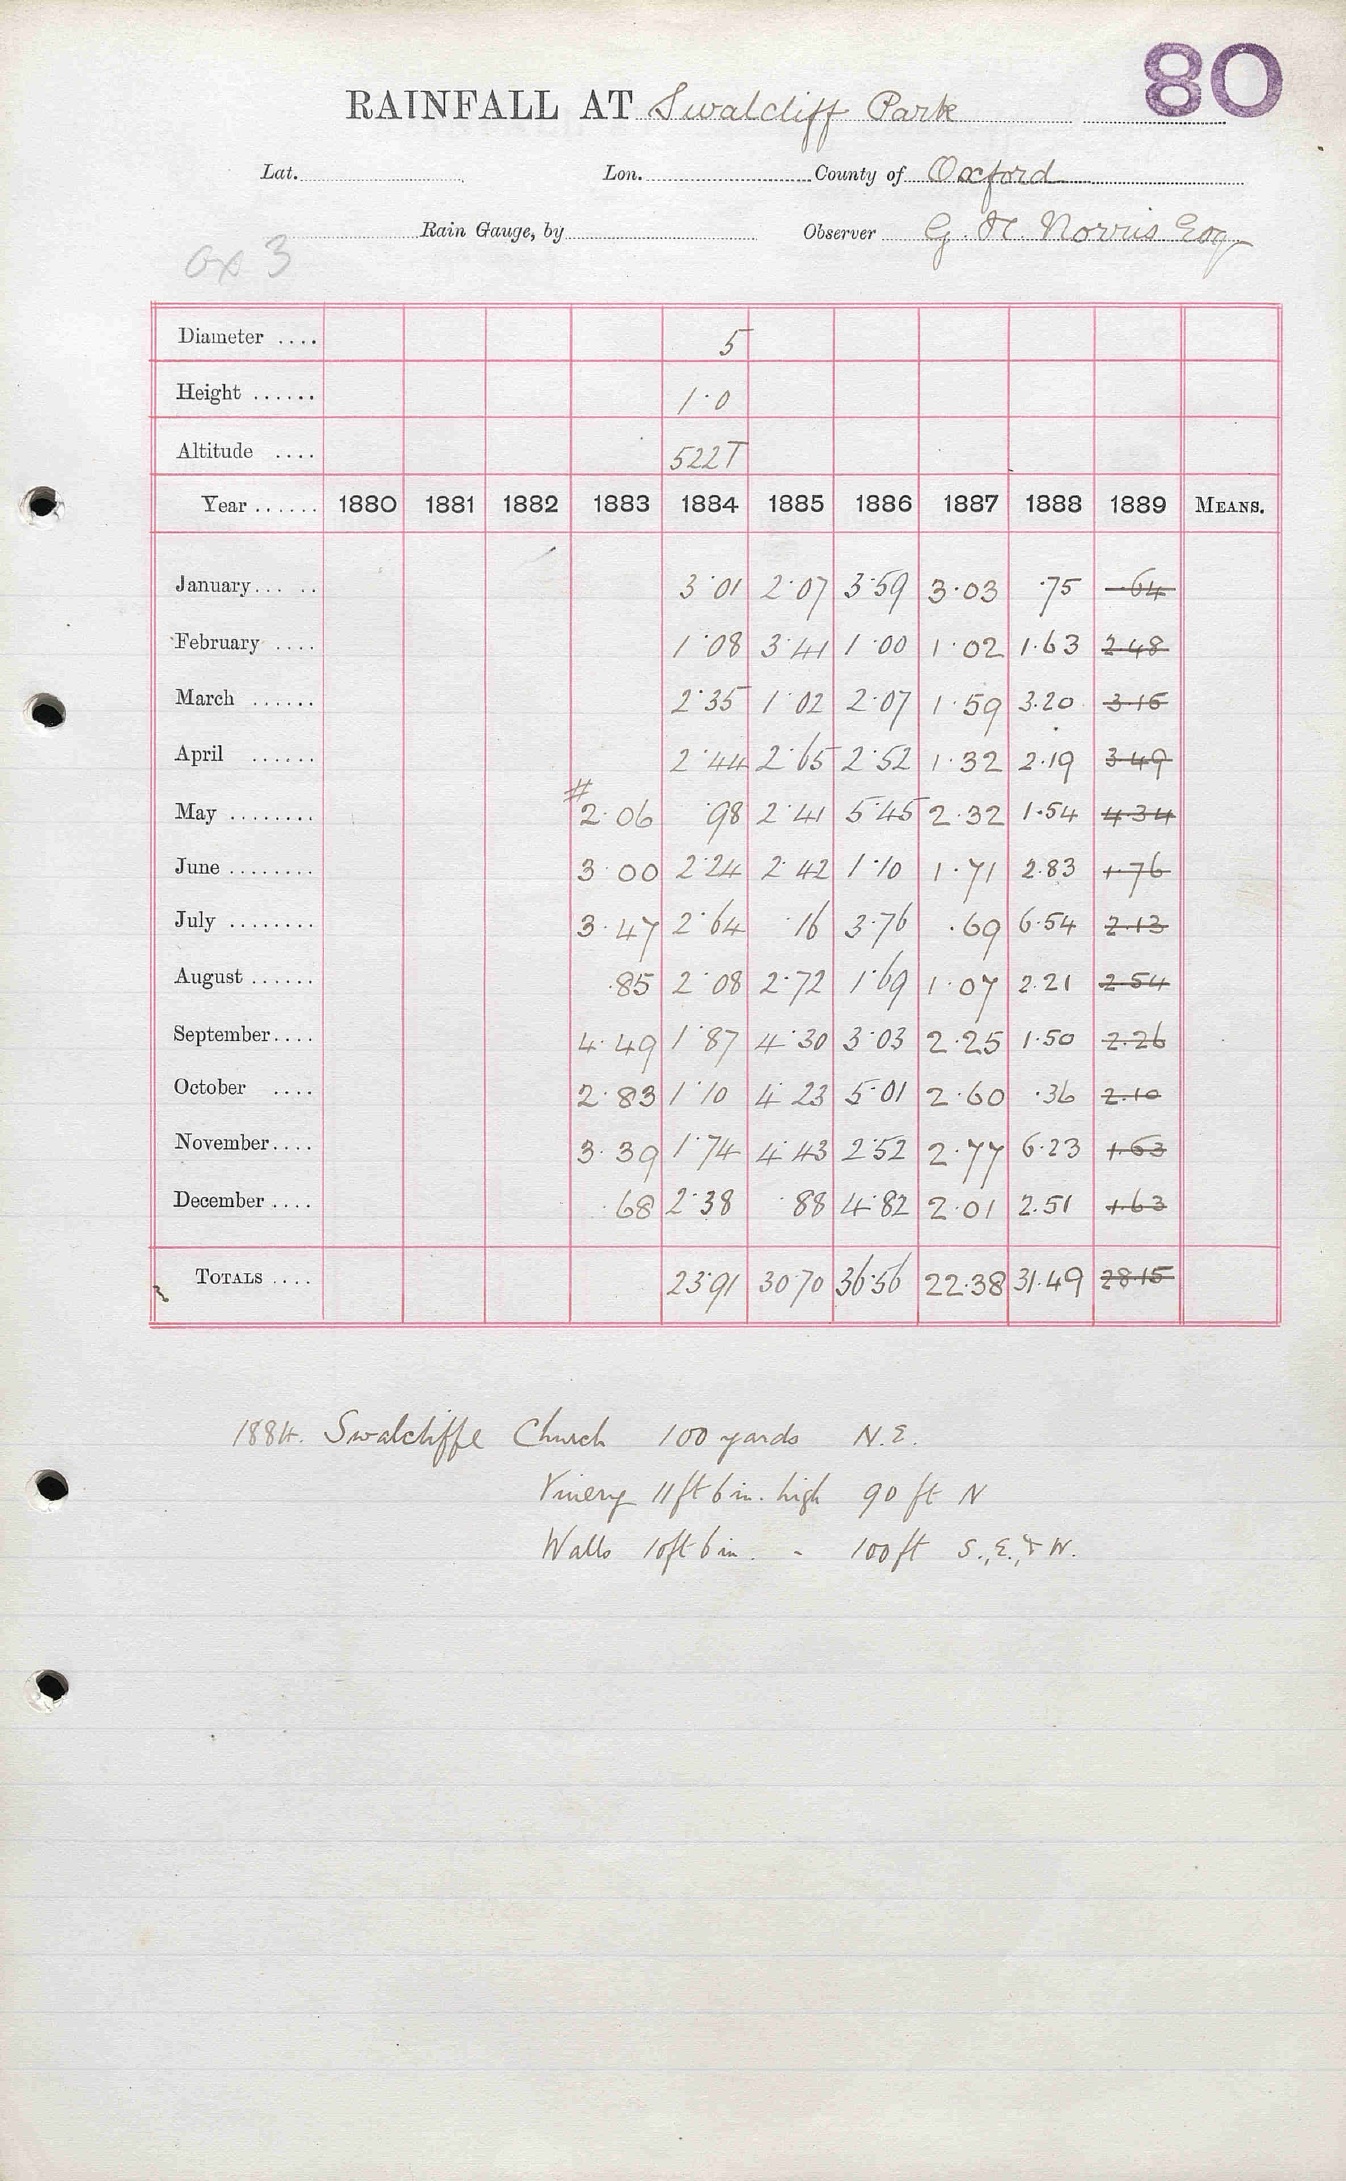 80
RAINFALL AT Swalcliff Park
Lat. Lon. County of Oxford
Rain Gauge, by Observer G. H. Norris Esq
Ox 3
Diameter .... 5
Height ...... 1·0
Altitude .... 522T
Year ...... 1880 1881 1882 1883 1884 1885 1886 1887 1888 1889 MEANS.
January... .. 3·01 2·07 3·59 3·03 ·75 ·64
February .... 1·08 3·41 1·00 1·02 1·63 2·48
March ...... 2·35 1·02 2·07 1·59 3.20 3·16
April ...... 2·44 2·65 2·52 1·32 2·19 3·49
May ........ #2·06 ·98 2·41 5·45 2·32 1·54 4·34
June ........ 3·00 2·24 2·42 1·10 1·71 2·83 1·76
July ........ 3·47 2·64 ·16 3·76 ·69 6·54 2·13
August ...... ·85 2·08 2·72 1·69 1·07 2·21 2·54
September.... 4·49 1·87 4·30 3·03 2·25 1·50 2·26
October .... 2·83 1·10 4·23 5·01 2·60 ·36 2·10
November.... 3·39 1·74 4·43 2·52 2·77 6·23 1·63
December .... ·68 2·38 ·88 4·82 2·01 2.51 1·63
TOTALS .... 23·91 30·70 36·56 22·38 31·49 28·15
1884. Swalcliffe Church 100 yards N.E.
Vinery 11ft 6in. high 90 ft N
Walls 10ft 6in. - 100ft S., E., & W.